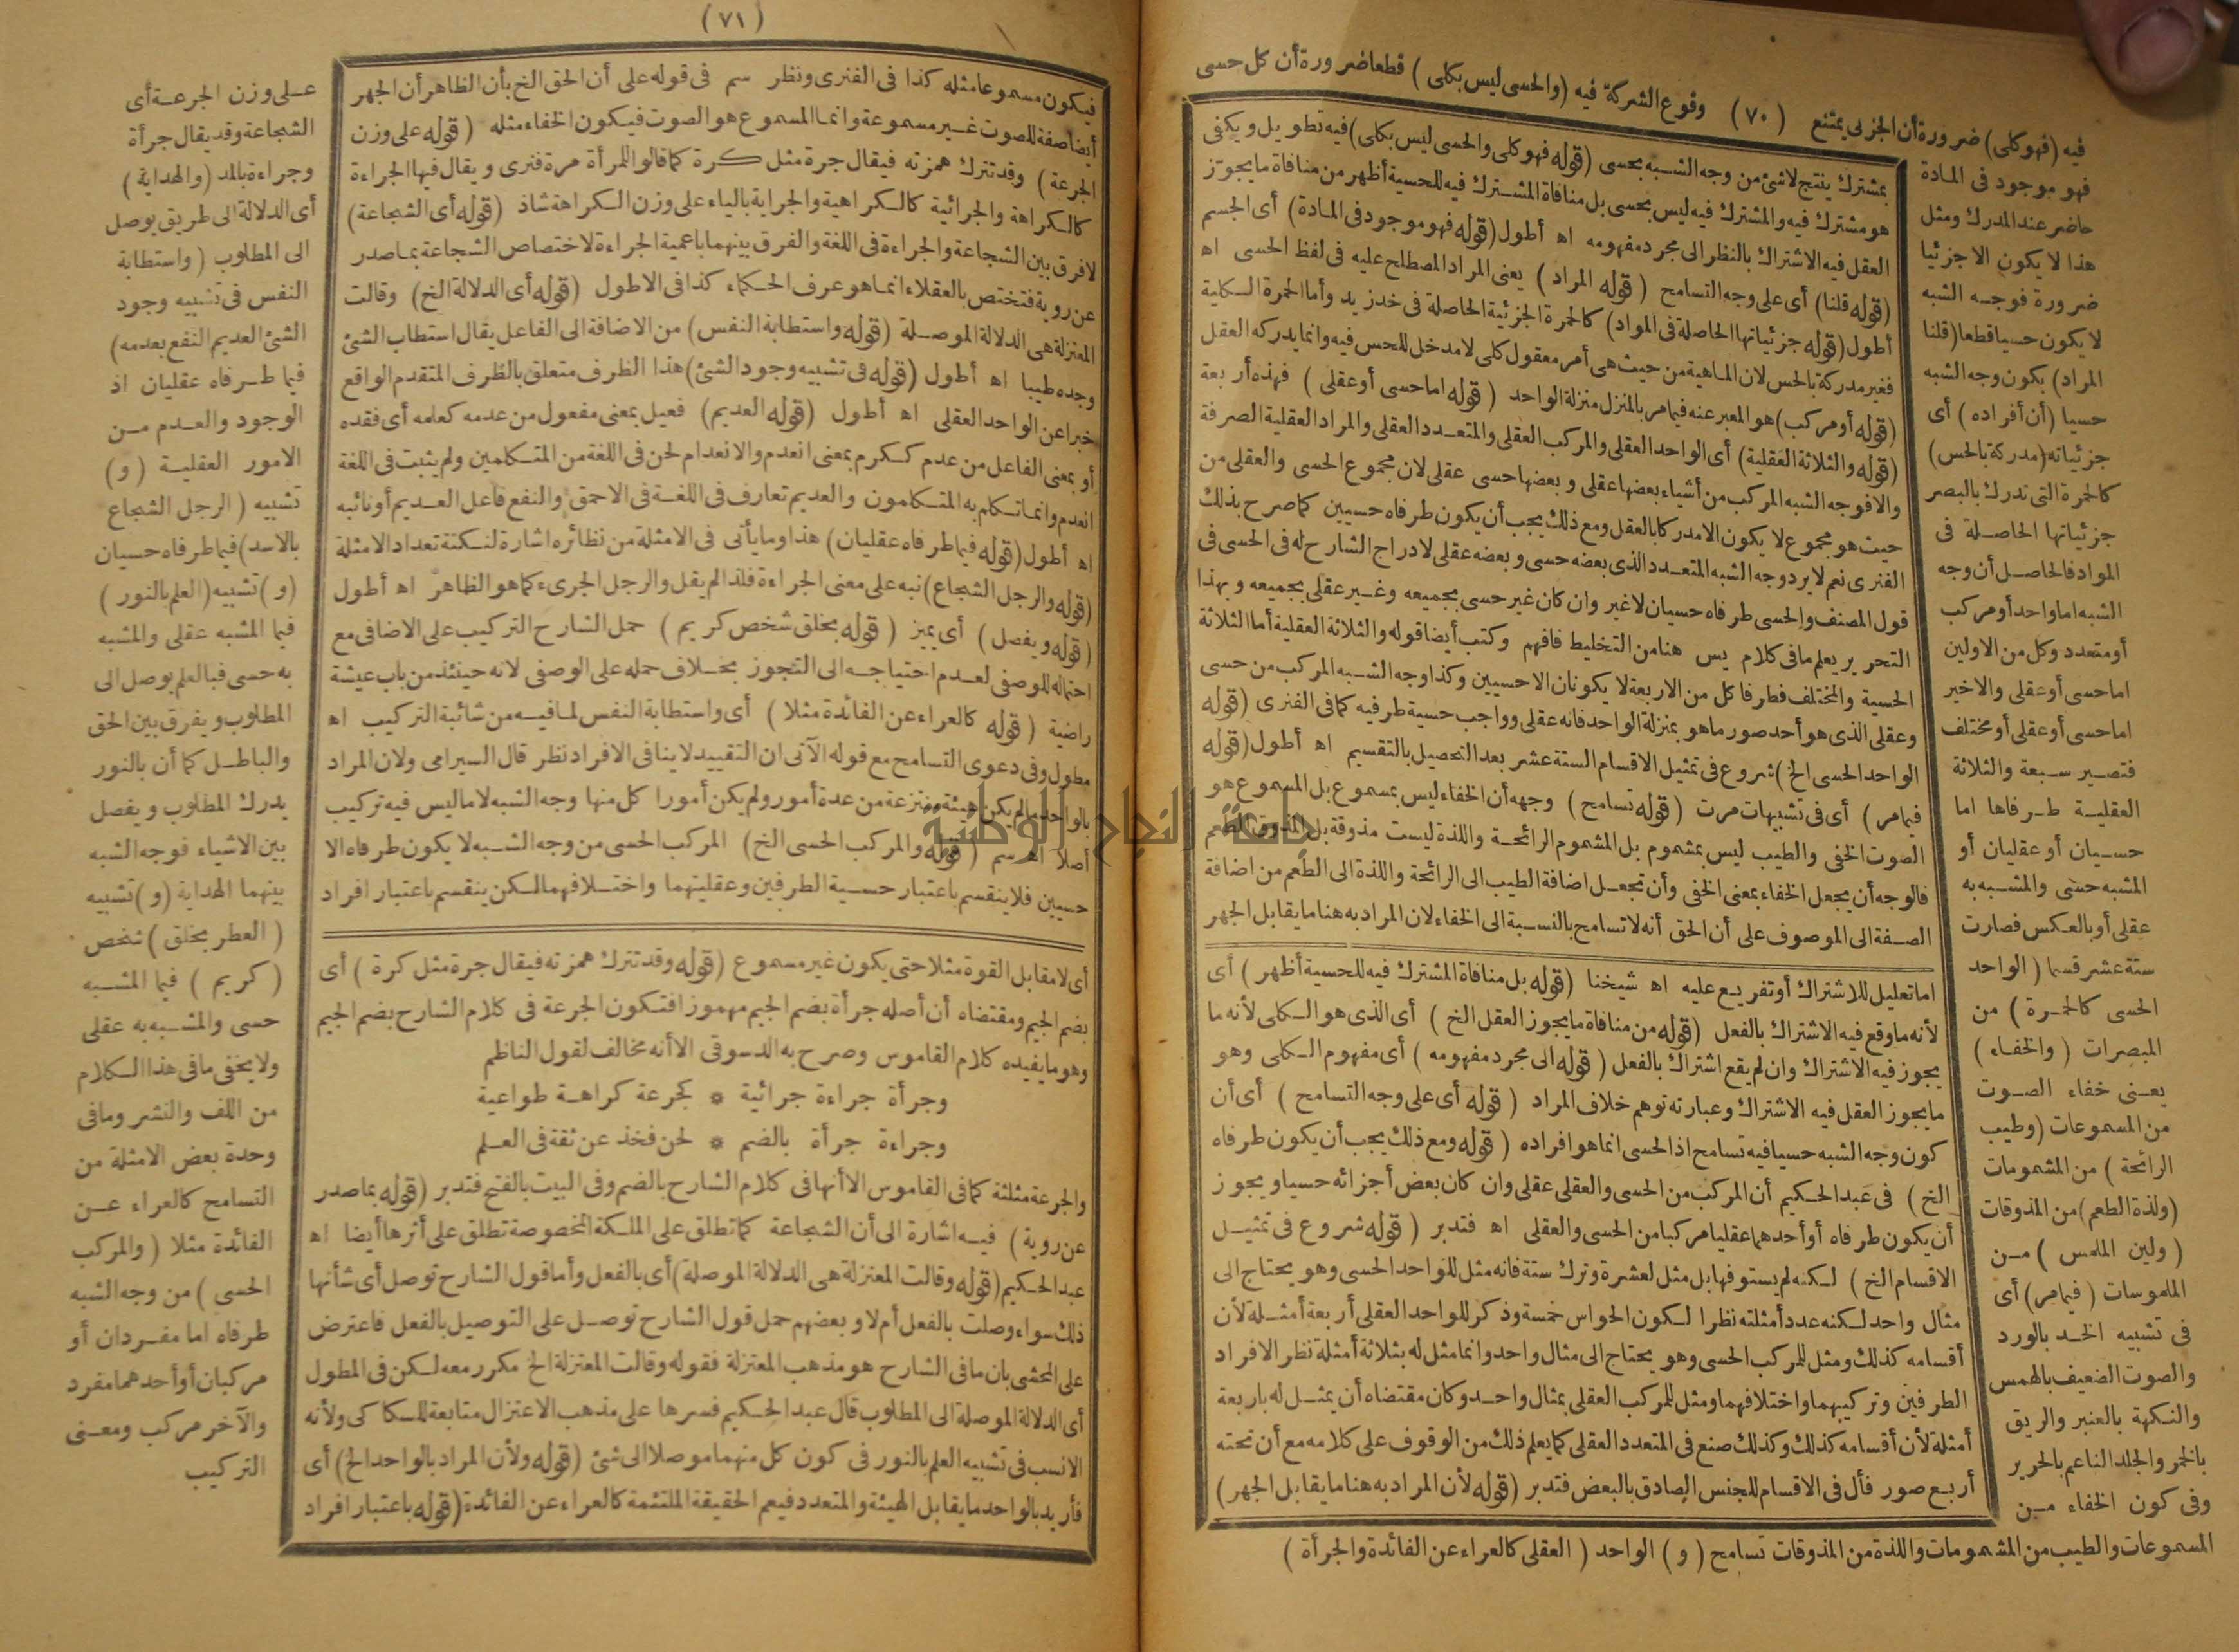 فيه (فهو كلى) ضرورة أن الجزئى يمتنع (٧٠) وقوع الشركة فيه (والحسى ليس بكلى) قطعا ضرورة أن كل حسى
فهو موجود فى المادة
حاضر عند المدرك ومثل
هذا لا يكون الا جزئيا
ضرورة فوجه الشبه
لا يكون حسيا قطعا (قلنا
المراد) بكون وجه الشبه
حسيا (أن أفراده) أى
جزئياته (مدركة بالحس)
كالحمرة التى تدرك بالبصر
جزئياتها الحاصلة فى
المواد فالحاصل أن وجه
الشبه اما واحد أو مركب
أو متعدد وكل من الاولين
اما حسى أو عقلى والاخير
اما حسى أو عقلى أو مختلف
فتصير سبعة والثلاثة
العقلية طرفاها اما
حسيان أو عقليان أو
المشبه حسى والمشبه به
عقلى أو بالعكس فصارت
ستة عشر قسما (الواحد
الحسى كالحمرة) من
المبصرات (والخفاء)
يعنى خفاء الصوت
من المسموعات (وطيب
الرائحة) من المشمومات
(ولذة الطعم) من المذوقات
(ولين الملمس) من
الملموسات (فيما مر) أى
فى تشبيه الخد بالورد
والصوت الضعيف بالهمس
والنكهة بالعنبر والريق
بالخمر والجلد الناعم بالحرير
وفى كون الخفاء من
المسموعات والطيب من المشمومات واللذة من المذوقات تسامح (و) الواحد (العقلى كالعراء عن الفائدة والجرأة)
بمشترك ينتج لا شئ من وجه الشبه بحسى (قوله فهو كلى والحسى ليس بكلى) فيه تطويل ويكفى
هو مشترك فيه والمشترك فيه ليس بحسى بل منافاة المشترك فيه للحسية أظهر من منافاة ما يجوّز
العقل فيه الاشتراك بالنظر الى مجرد مفهومه اه أطول (قوله فهو موجود فى المادة) أى الجسم
(قوله قلنا) أى على وجه التسامح (قوله المراد) يعنى المراد المصطلح عليه فى لفظ الحسى اه
أطول (قوله جزئياتها الحاصلة فى المواد) كالحمرة الجزئية الحاصلة فى خد زيد وأما الحمرة الكلية
فغير مدركة بالحس لان الماهية من حيث هى أمر معقول كلى لا مدخل للحس فيه وانما يدركه العقل
(قوله أو مركب) هو المعبر عنه فيما مر بالمنزل منزلة الواحد (قوله اما حسى أو عقلى) فهذه أربعة
(قوله والثلاثة العقلية) أى الواحد العقلى والمركب العقلى والمتعدد العقلى والمراد العقلية الصرفة
والا فوجه الشبه المركب من أشياء بعضها عقلى وبعضها حسى عقلى لان مجموع الحسى والعقلى من
حيث هو مجموع لا يكون الا مدركا بالعقل ومع ذلك يجب أن يكون طرفاه حسيين كما صرح بذلك
الفنرى نعم لا يرد وجه الشبه المتعدد الذى بعضه حسى وبعضه عقلى لادراج الشارح له فى الحسى فى
قول المصنف والحسى طرفاه حسيان لا غير وان كان غير حسى بجميعه وغير عقلى بجميعه وبهذا
التحرير يعلم ما فى كلام يس هنا من التخليط فافهم وكتب أيضا قوله والثلاثة العقلية أما الثلاثة
الحسية والمختلف فطرفا كل من الاربعة لا يكونان الا حسيين وكذا وجه الشبه المركب من حسى
وعقلى الذى هو أحد صور ما هو بمنزلة الواحد فانه عقلى وواجب حسية طرفيه كما فى الفنرى (قوله
الواحد الحسى الخ) شروع فى تمثيل الاقسام الستة عشر بعد التحصيل بالتقسيم اه أطول (قوله
فيما مر) أى فى تشبيهات مرت (قوله تسامح) وجهه أن الخفاء ليس بمسموع بل المسموع هو
الصوت الخفى والطيب ليس بمشموم بل المشموم الرائحة واللذة ليست مذوقة بل المذوق الطعم
فالوجه أن يجعل الخفاء بمعنى الخفى وأن تجعل اضافة الطيب الى الرائحة واللذة الى الطعم من اضافة
الصفة الى الموصوف على أن الحق أنه لا تسامح بالنسبة الى الخفاء لان المراد به هنا ما يقابل الجهر
اما تعليل للاشتراك أو تفريع عليه اه شيخنا (قوله بل منافاة المشترك فيه للحسية أظهر) أى
لأنه ما وقع فيه الاشتراك بالفعل (قوله من منافاة ما يجوز العقل الخ) أى الذى هو الكلى لأنه ما
يجوز فيه الاشتراك وان لم يقع اشتراك بالفعل (قوله الى مجرد مفهومه) أى مفهوم الكلى وهو
ما يجوز العقل فيه الاشتراك وعبارته توهم خلاف المراد (قوله أى على وجه التسامح) أى أن
كون وجه الشبه حسيا فيه تسامح اذ الحسى انما هو افراده (قوله ومع ذلك يجب أن يكون طرفاه
الخ) فى عبد الحكيم أن المركب من الحسى والعقلى عقلى وان كان بعض أجزائه حسيا ويجوز
أن يكون طرفاه أو أحدهما عقليا مركبا من الحسى والعقلى اه فتدبر (قوله شروع فى تمثيل
الاقسام الخ) لكنه لم يستوفها بل مثل لعشرة وترك ستة فانه مثل للواحد الحسى وهو يحتاج الى
مثال واحد لكنه عدد أمثلته نظرا لكون الحواس خمسة وذكر للواحد العقلى أربعة أمثلة لأن
أقسامه كذلك ومثل للمركب الحسى وهو يحتاج الى مثال واحد وانما مثل له بثلاثة أمثلة نظر الافراد
الطرفين وتركيبهما واختلافهما ومثل للمركب العقلى بمثال واحد وكان مقتضاه أن يمثل له باربعة
أمثلة لأن أقسامه كذلك وكذلك صنع فى المتعدد العقلى كما يعلم ذلك من الوقوف على كلامه مع أن تحته
أربع صور فأل فى الاقسام للجنس الصادق بالبعض فتدبر (قوله لأن المراد به هنا ما يقابل الجهر)
(٧١)
فيكون مسموعا مثله كذا فى الفنرى ونظر سم فى قوله على أن الحق الخ بأن الظاهر أن الجهر
أيضا صفة للصوت غير مسموعة وانما المسموع هو الصوت فيكون الخفاء مثله (قوله على وزن
الجرعة) وقد تترك همزته فيقال جرة مثل كرة كما قالوا للمرأة مرة فنرى ويقال فيها الجراءة
كالكراهة والجرائية كالكراهية والجراية بالياء على وزن الكراهة شاذ (قوله أى الشجاعة)
لا فرق بين الشجاعة والجراءة فى اللغة والفرق بينهما باعمية الجراءة لاختصاص الشجاعة بما صدر
عن روية فتختص بالعقلاء انما هو عرف الحكماء كذا فى الاطول (قوله أى الدلالة الخ) وقالت
المعتزلة هى الدلالة الموصلة (قوله واستطابة النفس) من الاضافة الى الفاعل يقال استطاب الشئ
وجده طيبا اه أطول (قوله فى تشبيه وجود الشئ) هذا الظرف متعلق بالظرف المتقدم الواقع
خبرا عن الواحد العقلى اه أطول (قوله العديم) فعيل بمعنى مفعول من عدمه كعلمه أى فقده
أو بمعنى الفاعل من عدم ككرم بمعنى انعدم والانعدام لحن فى اللغة من المتكلمين ولم يثبت فى اللغة
انعدم وانما تكلم به المتكلمون والعديم تعارف فى اللغة فى الاحمق والنفع فاعل العديم أو نائبه
اه أطول (قوله فيما طرفاه عقليان) هذا وما يأتى فى الامثلة من نظائره اشارة لنكتة تعداد الامثلة
(قوله والرجل الشجاع) نبه على معنى الجراءة فلذا لم يقل والرجل الجرىء كما هو الظاهر اه أطول
(قوله ويفصل) أى يميز (قوله بخلق شخص كريم) حمل الشارح التركيب على الاضافى مع
احتماله للوصفى لعدم احتياجه الى التجوز بخلاف حمله على الوصفى لانه حينئذ من باب عيشة
راضية (قوله كالعراء عن الفائدة مثلا) أى واستطابة النفس لما فيه من شائبة التركيب اه
مطول وفى دعوى التسامح مع قوله الآتى ان التقييد لا ينافى الافراد نظر قال السيرامى ولان المراد
بالواحد ما لم يكن هيئة منتزعة من عدة أمور ولم يكن أمورا كل منها وجه الشبه لا ما ليس فيه تركيب
أصلا اه سم (قوله والمركب الحسى الخ) المركب الحسى من وجه الشبه لا يكون طرفاه الا
حسيين فلا ينقسم باعتبار حسية الطرفين وعقليتهما واختلافهما لكن ينقسم باعتبار افراد
أى لا مقابل القوة مثلا حتى يكون غير مسموع (قوله وقد تترك همزته فيقال جرة مثل كرة) أى
بضم الجيم ومقتضاه أن أصله جرأة بضم الجيم مهموزا فتكون الجرعة فى كلام الشارح بضم الجيم
وهو ما يفيده كلام القاموس وصرح به الدسوقى الا أنه مخالف لقول الناظم
وجرأة جراءة جرائية * كجرعة كراهة طواعية
وجراءة جرأة بالضم * لحن فخذ عن ثقة فى العلم
والجرعة مثلثة كما فى القاموس الا أنها فى كلام الشارح بالضم وفى البيت بالفتح فتدبر (قوله بما صدر
عن روية) فيه اشارة الى أن الشجاعة كما تطلق على الملكة المخصوصة تطلق على أثرها أيضا اه
عبد الحكيم (قوله وقالت المعتزلة هى الدلالة الموصلة) أى بالفعل وأما قول الشارح توصل أى شأنها
ذلك سواء وصلت بالفعل أم لا وبعضهم حمل قول الشارح توصل على التوصيل بالفعل فاعترض
على المحشى بان ما فى الشارح هو مذهب المعتزلة فقوله وقالت المعتزلة الخ مكرر معه لكن فى المطول
أى الدلالة الموصلة الى المطلوب قال عبد الحكيم فسرها على مذهب الاعتزال متابعة للسكاكى ولأنه
الانسب فى تشبيه العلم بالنور فى كون كل منهما موصلا الى شئ (قوله ولأن المراد بالواحد الخ) أى
فأريد بالواحد ما يقابل الهيئة والمتعدد فيعم الحقيقة الملتئمة كالعراء عن الفائدة (قوله باعتبار افراد
على وزن الجرعة أى
الشجاعة وقد يقال جرأة
وجراءة بالمد (والهداية)
أى الدلالة الى طريق يوصل
الى المطلوب (واستطابة
النفس فى تشبيه وجود
الشئ العديم النفع بعدمه)
فيما طرفاه عقليان اذ
الوجود والعدم من
الامور العقلية (و)
تشبيه (الرجل الشجاع
بالاسد) فيما طرفاه حسيان
(و) تشبيه (العلم بالنور)
فيما المشبه عقلى والمشبه
به حسى فبالعلم يوصل الى
المطلوب ويفرق بين الحق
والباطل كما أن بالنور
يدرك المطلوب ويفصل
بين الاشياء فوجه الشبه
بينهما الهداية (و) تشبيه
(العطر بخلق) شخص
(كريم) فيما المشبه
حسى والمشبه به عقلى
ولا يخفى ما فى هذا الكلام
من اللف والنشر وما فى
وحدة بعض الامثلة من
التسامح كالعراء عن
الفائدة مثلا (والمركب
الحسى) من وجه الشبه
طرفاه اما مفردان أو
مركبان أو أحدهما مفرد
والآخر مركب ومعنى
التركيب
جامعة النجاح الوطنية